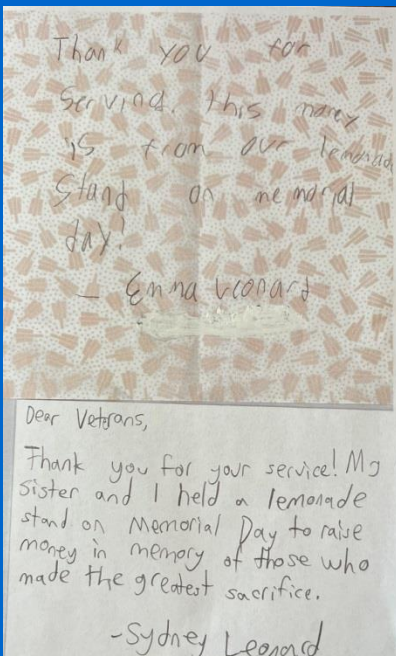 Thank you for
serving. this money
is from our lemonad
stand on memorial
day!
— Emma Leonard
Dear Veterans,
Thank you for your service! My
sister and I held a lemonade
stand on Memorial Day to raise
money in memory of those who
made the greatest sacrifice.
-Sydney Leonard